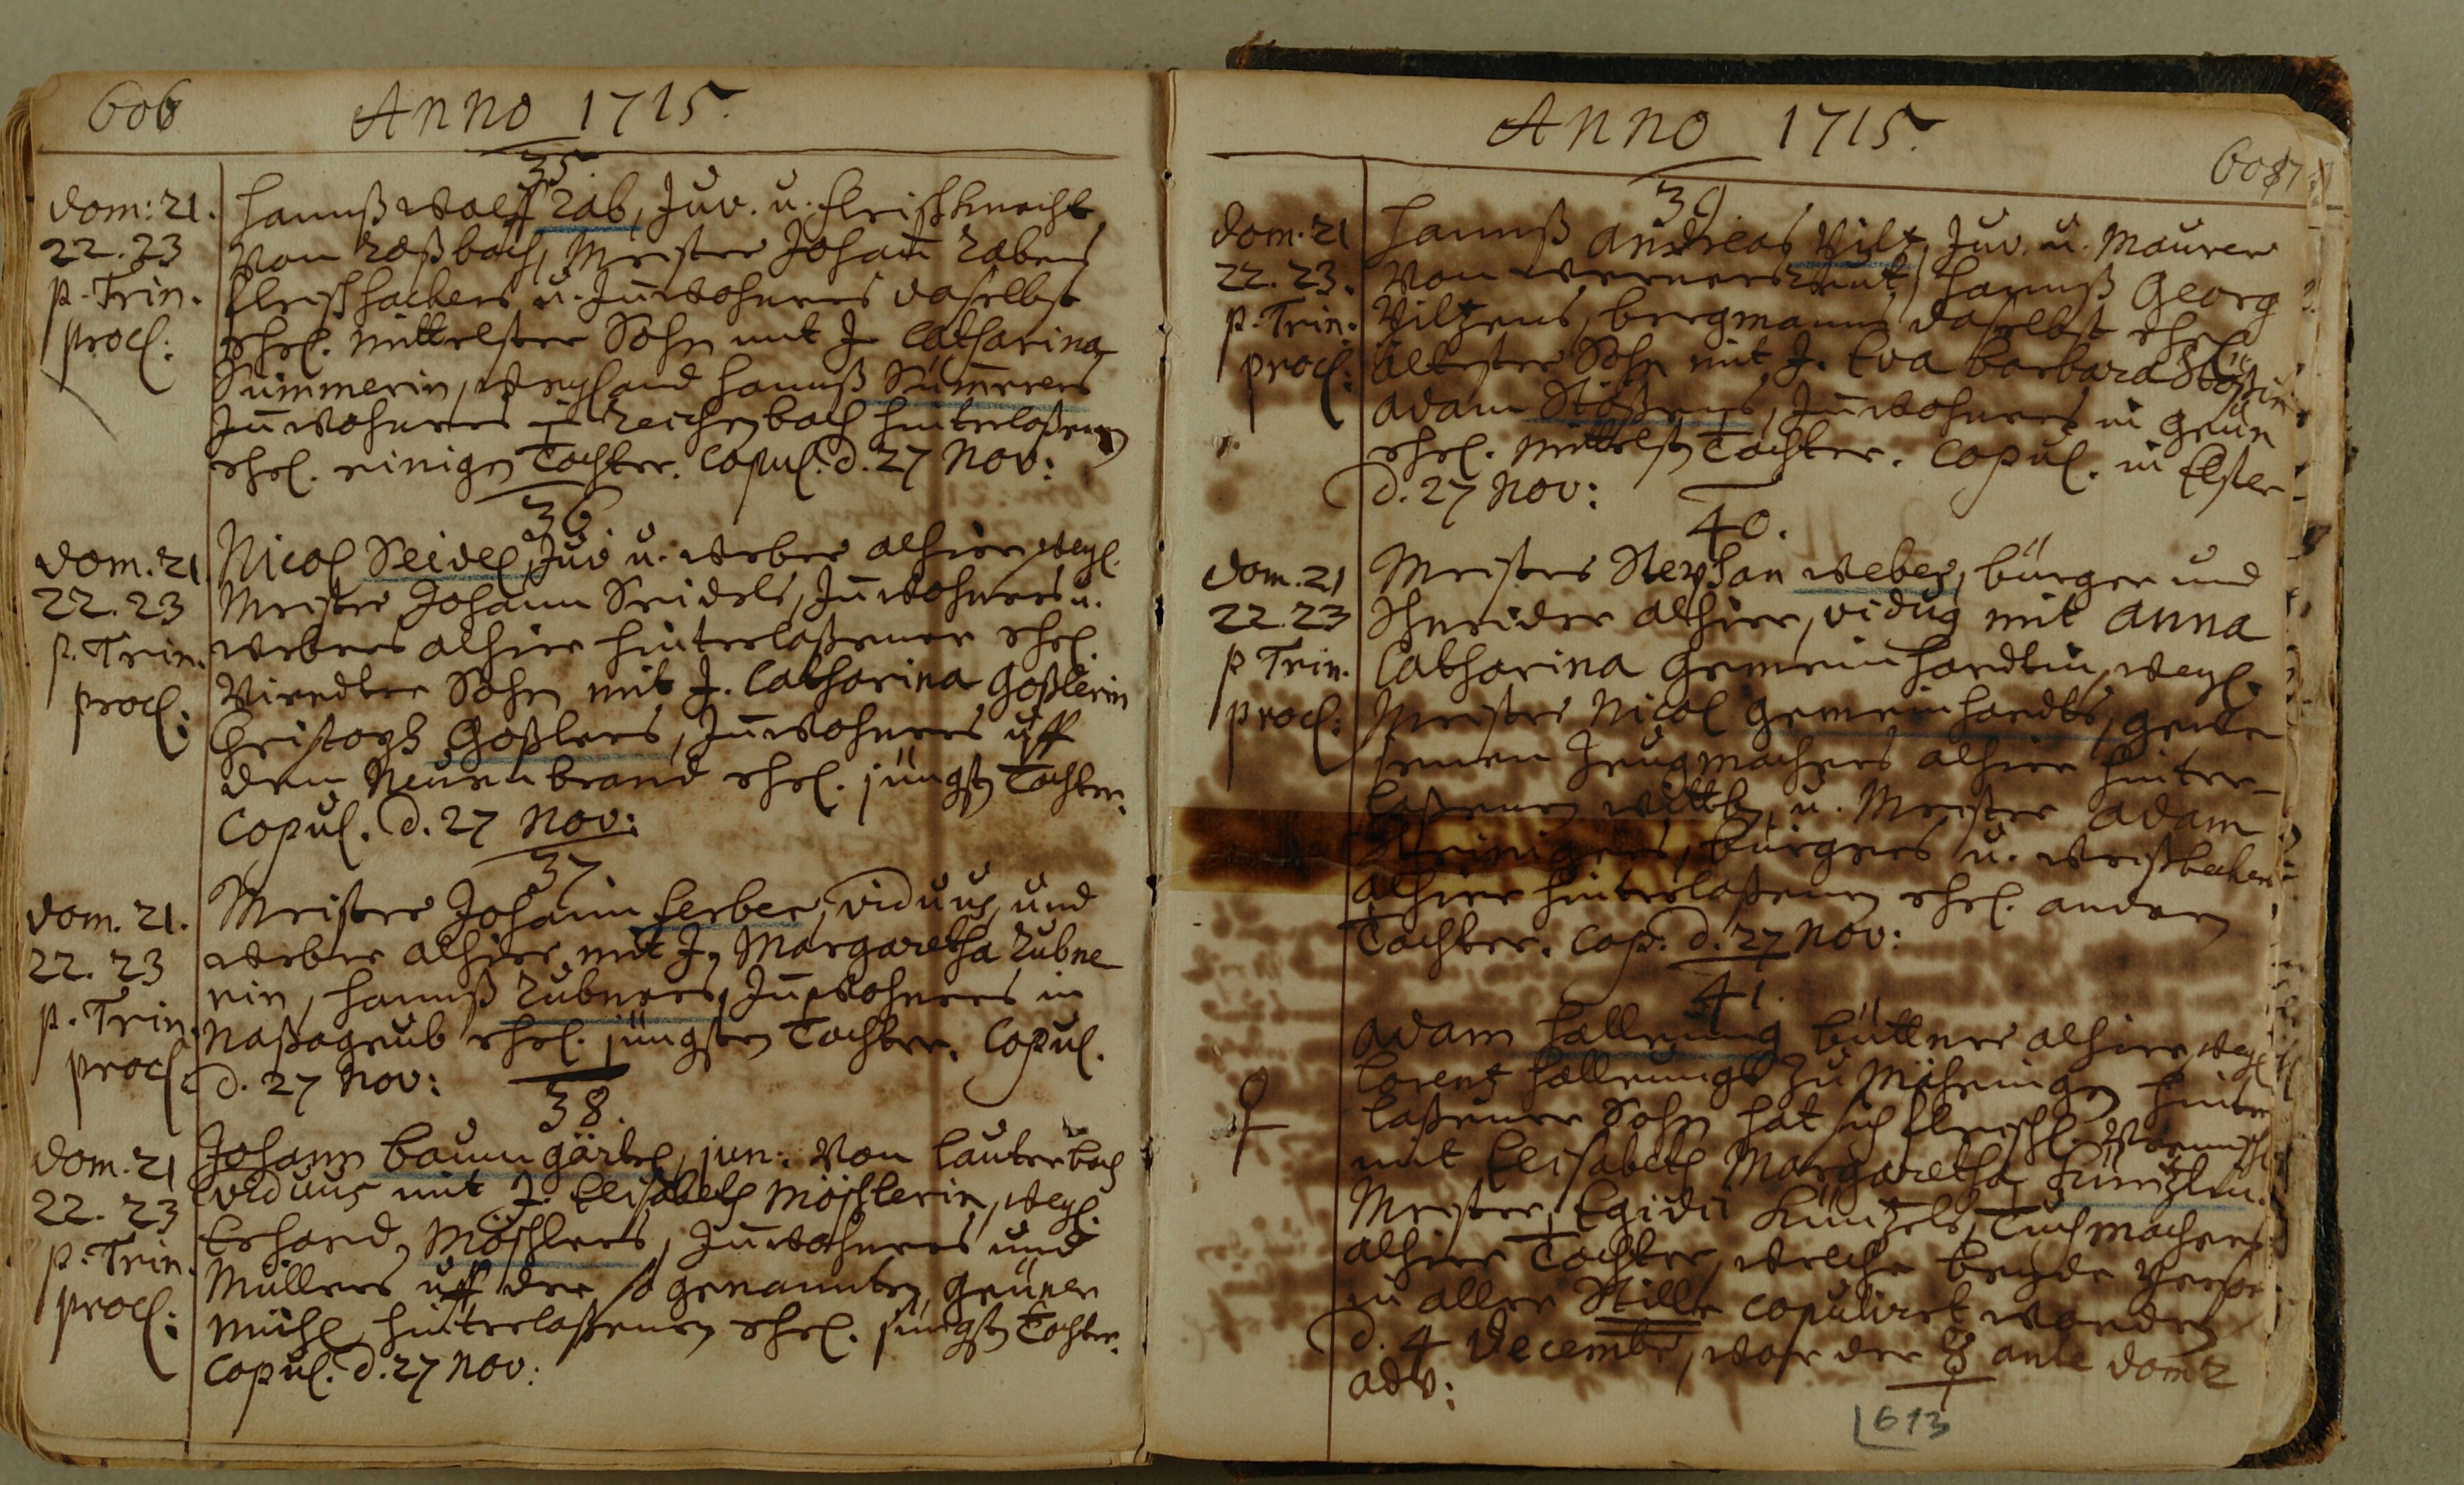 606
Anno 1715.
35.
Dom: 21.
22. 23
p. Trin.
procl:
Hannß Wolff Rab, Juv. u. Fleischknecht
von Roßbach, Meister Johann Rabens
Fleischhackers u. Innwohners daselbst
ehel. mittelster Sohn mit J. Catharina
Summerin, weyland Hannß Summerers
Innwohners in Reichenbach hinterlaßenen
ehel. einige Tochter. Copul. d. 27 Nov:
36.
Dom. 21
22. 23
p. Trin.
procl:
Nicol Seidel, Juv. u. Weber alhier, weyl.
Meister Johann Seidels, Innwohners u.
Webers alhier hinterlaßener ehel.
vierdter Sohn mit J. Catharina Goßlerin
Christoph Goßlers, Innwohners uff
dem Neuen brand ehel. jüngste Tochter.
Copul. d. 27 Nov:
37.
Dom. 21.
22. 23
p. Trin.
procl.
Meister Johann Ferber, viduus, und
Weber alhier, mit J. Margaretha Rubne
rin, Hannß Rubners, Innwohners in
Naßagrub ehel. jüngsten Tochter. Copul.
d. 27 Nov:
38.
Dom. 21
22. 23
p. Trin.
procl:
Johann Baumgärtel, jun. von Lauterbach
viduus mit J. Elisabeth Möschlerin, weyl.
Erhard Möschlers, Innwohners und
Müllers uff der so genannten Grünen
Mühl hinterlaßenen ehel. jüngste Tochter.
Copul. d. 27 Nov:
Anno 1715.
607
39
Dom. 21
22. 23.
p. Trin.
procl:
Hannß Andreas Viltz, Juv. u. Maurer
von Wernersreut, Hannß Georg
Viltzens, bergmanns daselbst ehel.
ältester Sohn mit J. Eva Barbara Stößin
Adam Stößens, Innwohners in Grün
ehel. mittelste Tochter. Copul. in Elster
d. 27 Nov:
40.
Dom. 21
22. 23
p Trin.
procl:
Meister Stephan Weber, bürger und
Schneider alhier, viduus mit Anna
Catharina Gemeinhardtin, weyl.
Meister Nicol Gemeinhardts, gewe
senen Zeugmachers alhier hinter-
laßenen Wittbe, u. Meister Adam
bürgers u. Weißbecken
alhier hinterlaßenen ehel. andern
Tochter. Cop. d. 27 Nov:
41.
Adam Hallrung büttner alhier, weyl.
Lorentz Hallrungs zu hinter
laßener Sohn hat sich fleischl. vermischt
mit Elisabeth Margaretha Küntzlin.
Meister Egidii Küntzels, Tuchmachers
alhier Tochter, welche beyde Perso
in aller Stille copuliret worden
d. 4 Decembr, war der ☿ ante Dom 2
Adv:
613